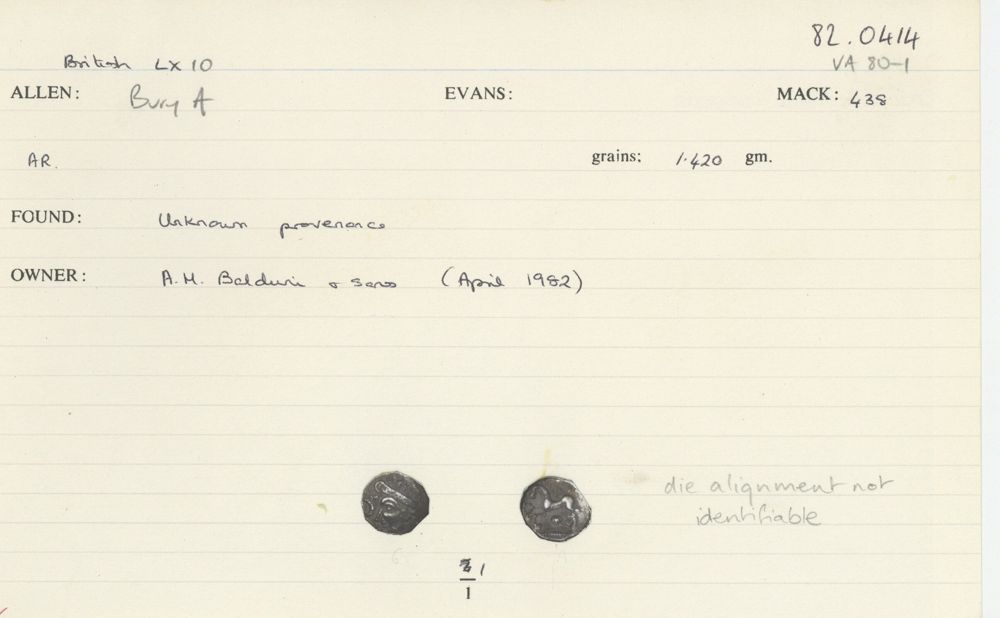 82.0414
British LX 10
VA 80-1
ALLEN: Bury A EVANS: MACK: 438
AR. grains: 1.420 gm.
FOUND: Unknown provenance
OWNER: A.H. Baldwin & Sons (April 1982)
die alignment not
identifiable
1
1